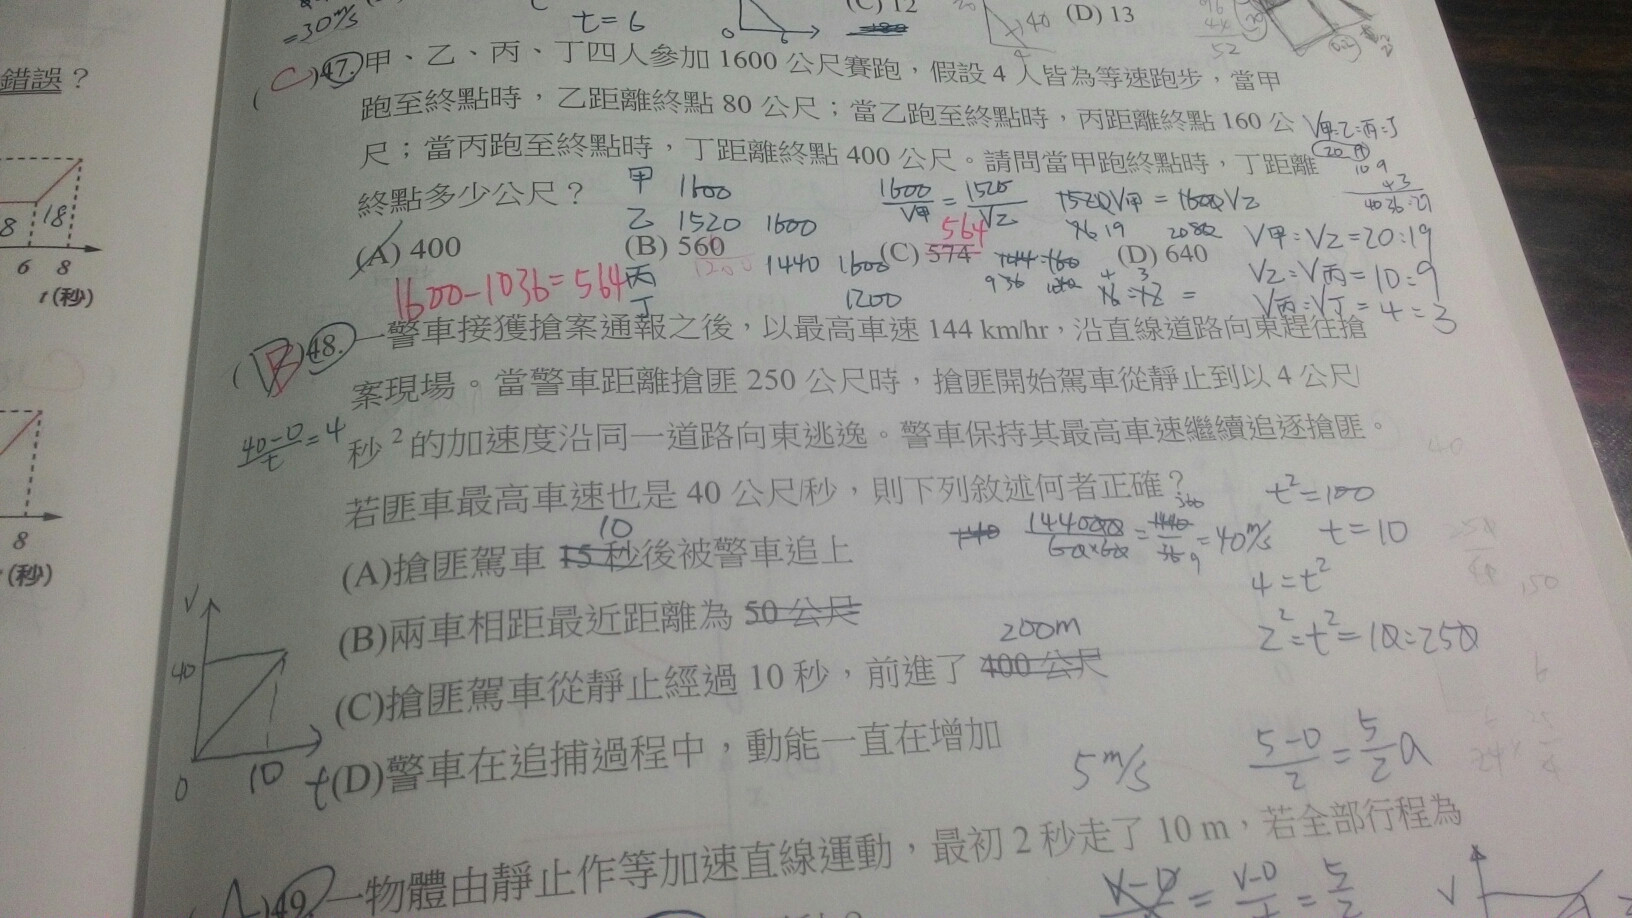 =30 m/s
t=6
(C) 12
40
(D) 13
52
錯誤？
8
18
6 8
t(秒)
8
(秒)
(C)47.甲、乙、丙、丁四人參加 1600 公尺賽跑，假設 4 人皆為等速跑步，當甲
跑至終點時，乙距離終點 80 公尺；當乙跑至終點時，丙距離終點 160 公
尺；當丙跑至終點時，丁距離終點 400 公尺。請問當甲跑終點時，丁距離
終點多少公尺？
V甲:乙:丙:丁
20 19
10 9
4 3
40 36:27
甲 1600
乙 1520 1600
丙 1440 1600
丁 1200
1600/V甲 = 1520/V乙
1520V甲 = 1600V乙
V甲:V乙=20:19
V乙:V丙=10:9
V丙:V丁=4:3
(A) 400
(B) 560
(C) 574
564
(D) 640
1200
936
1600-1036=564
(B)48.一警車接獲搶案通報之後，以最高車速 144 km/hr，沿直線道路向東趕往搶
案現場。當警車距離搶匪 250 公尺時，搶匪開始駕車從靜止到以 4 公尺/
秒² 的加速度沿同一道路向東逃逸。警車保持其最高車速繼續追逐搶匪。
若匪車最高車速也是 40 公尺/秒，則下列敘述何者正確？
40-0/t=4
144000/60×60 = 1440/36 = 40 m/s
t²=100
t=10
4=t²
2²=t²=10=250
10
(A)搶匪駕車 15 秒後被警車追上
(B)兩車相距最近距離為 50 公尺
200m
(C)搶匪駕車從靜止經過 10 秒，前進了 400 公尺
(D)警車在追捕過程中，動能一直在增加
V
40
0
10
t
5 m/s
5-0/2=5/2 a
49.一物體由靜止作等加速直線運動，最初 2 秒走了 10 m，若全部行程為
V-0/t = 5/2
V